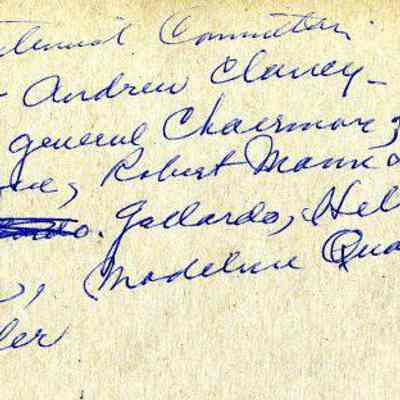 Committee
Andrew Clancy -
general Chairman
Robert Mann &
Gallardo, Hel
, Madeline Qua
ler